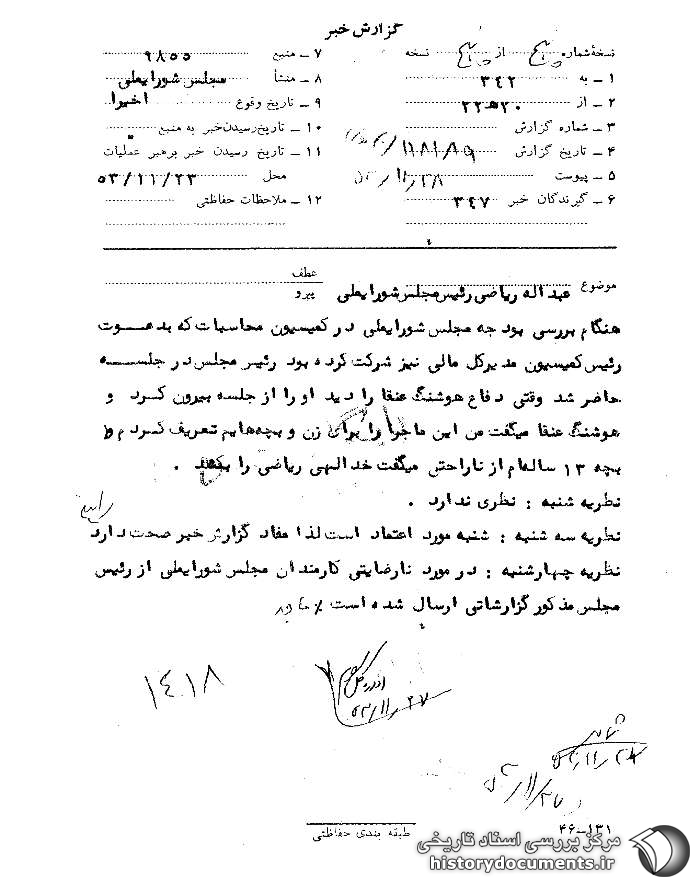 گزارش خبر
نسخه شماره از نسخه
۱ ــ به ۳۴۲
۲ ــ از ۲۰ هـ ۲۲
۳ ــ شماره گزارش
۴ ــ تاریخ گزارش
۵ ــ پیوست
۶ ــ گیرندگان خبر ۳۴۷
۷ ــ منبع ۹۸۵۵
۸ ــ منشأ مجلس شورایملی
۹ ــ تاریخ وقوع اخیرا
۱۰ ــ تاریخ رسیدن خبر به منبع
۱۱ ــ تاریخ رسیدن خبر برهبر عملیات
محل ۵۳/۱۱/۲۳
۱۲ ــ ملاحظات حفاظتی
موضوع عبداله ریاضی رئیس مجلس شورایملی
عطف
پیرو
هنگام بررسی بودجه مجلس شورایملی در کمیسیون محاسبات که بدعوت
رئیس کمیسیون مدیرکل مالی نیز شرکت کرده بود رئیس مجلس در جلسه
حاضر شد وقتی دفاع هوشنگ عنقا را دید او را از جلسه بیرون کرد و
هوشنگ عنقا میگفت من این ماجرا را برای زن و بچه‌هایم تعریف کردم و
بچه ۱۳ ساله‌ام از ناراحتی میگفت خدا الهی ریاضی را بکشد .
نظریه شنبه : نظری ندارد .
نظریه سه شنبه : شنبه مورد اعتماد است لذا مفاد گزارش خبر صحت دارد
نظریه چهارشنبه : در مورد نارضایتی کارمندان مجلس شورایملی از رئیس
مجلس مذکور گزارشاتی ارسال شده است
۱۴۱۸
۵۳/۱۱/۲۷
طبقه بندی حفاظتی
۴۶-۱۳۱
مرکز بررسی اسناد تاریخی
historydocuments.ir